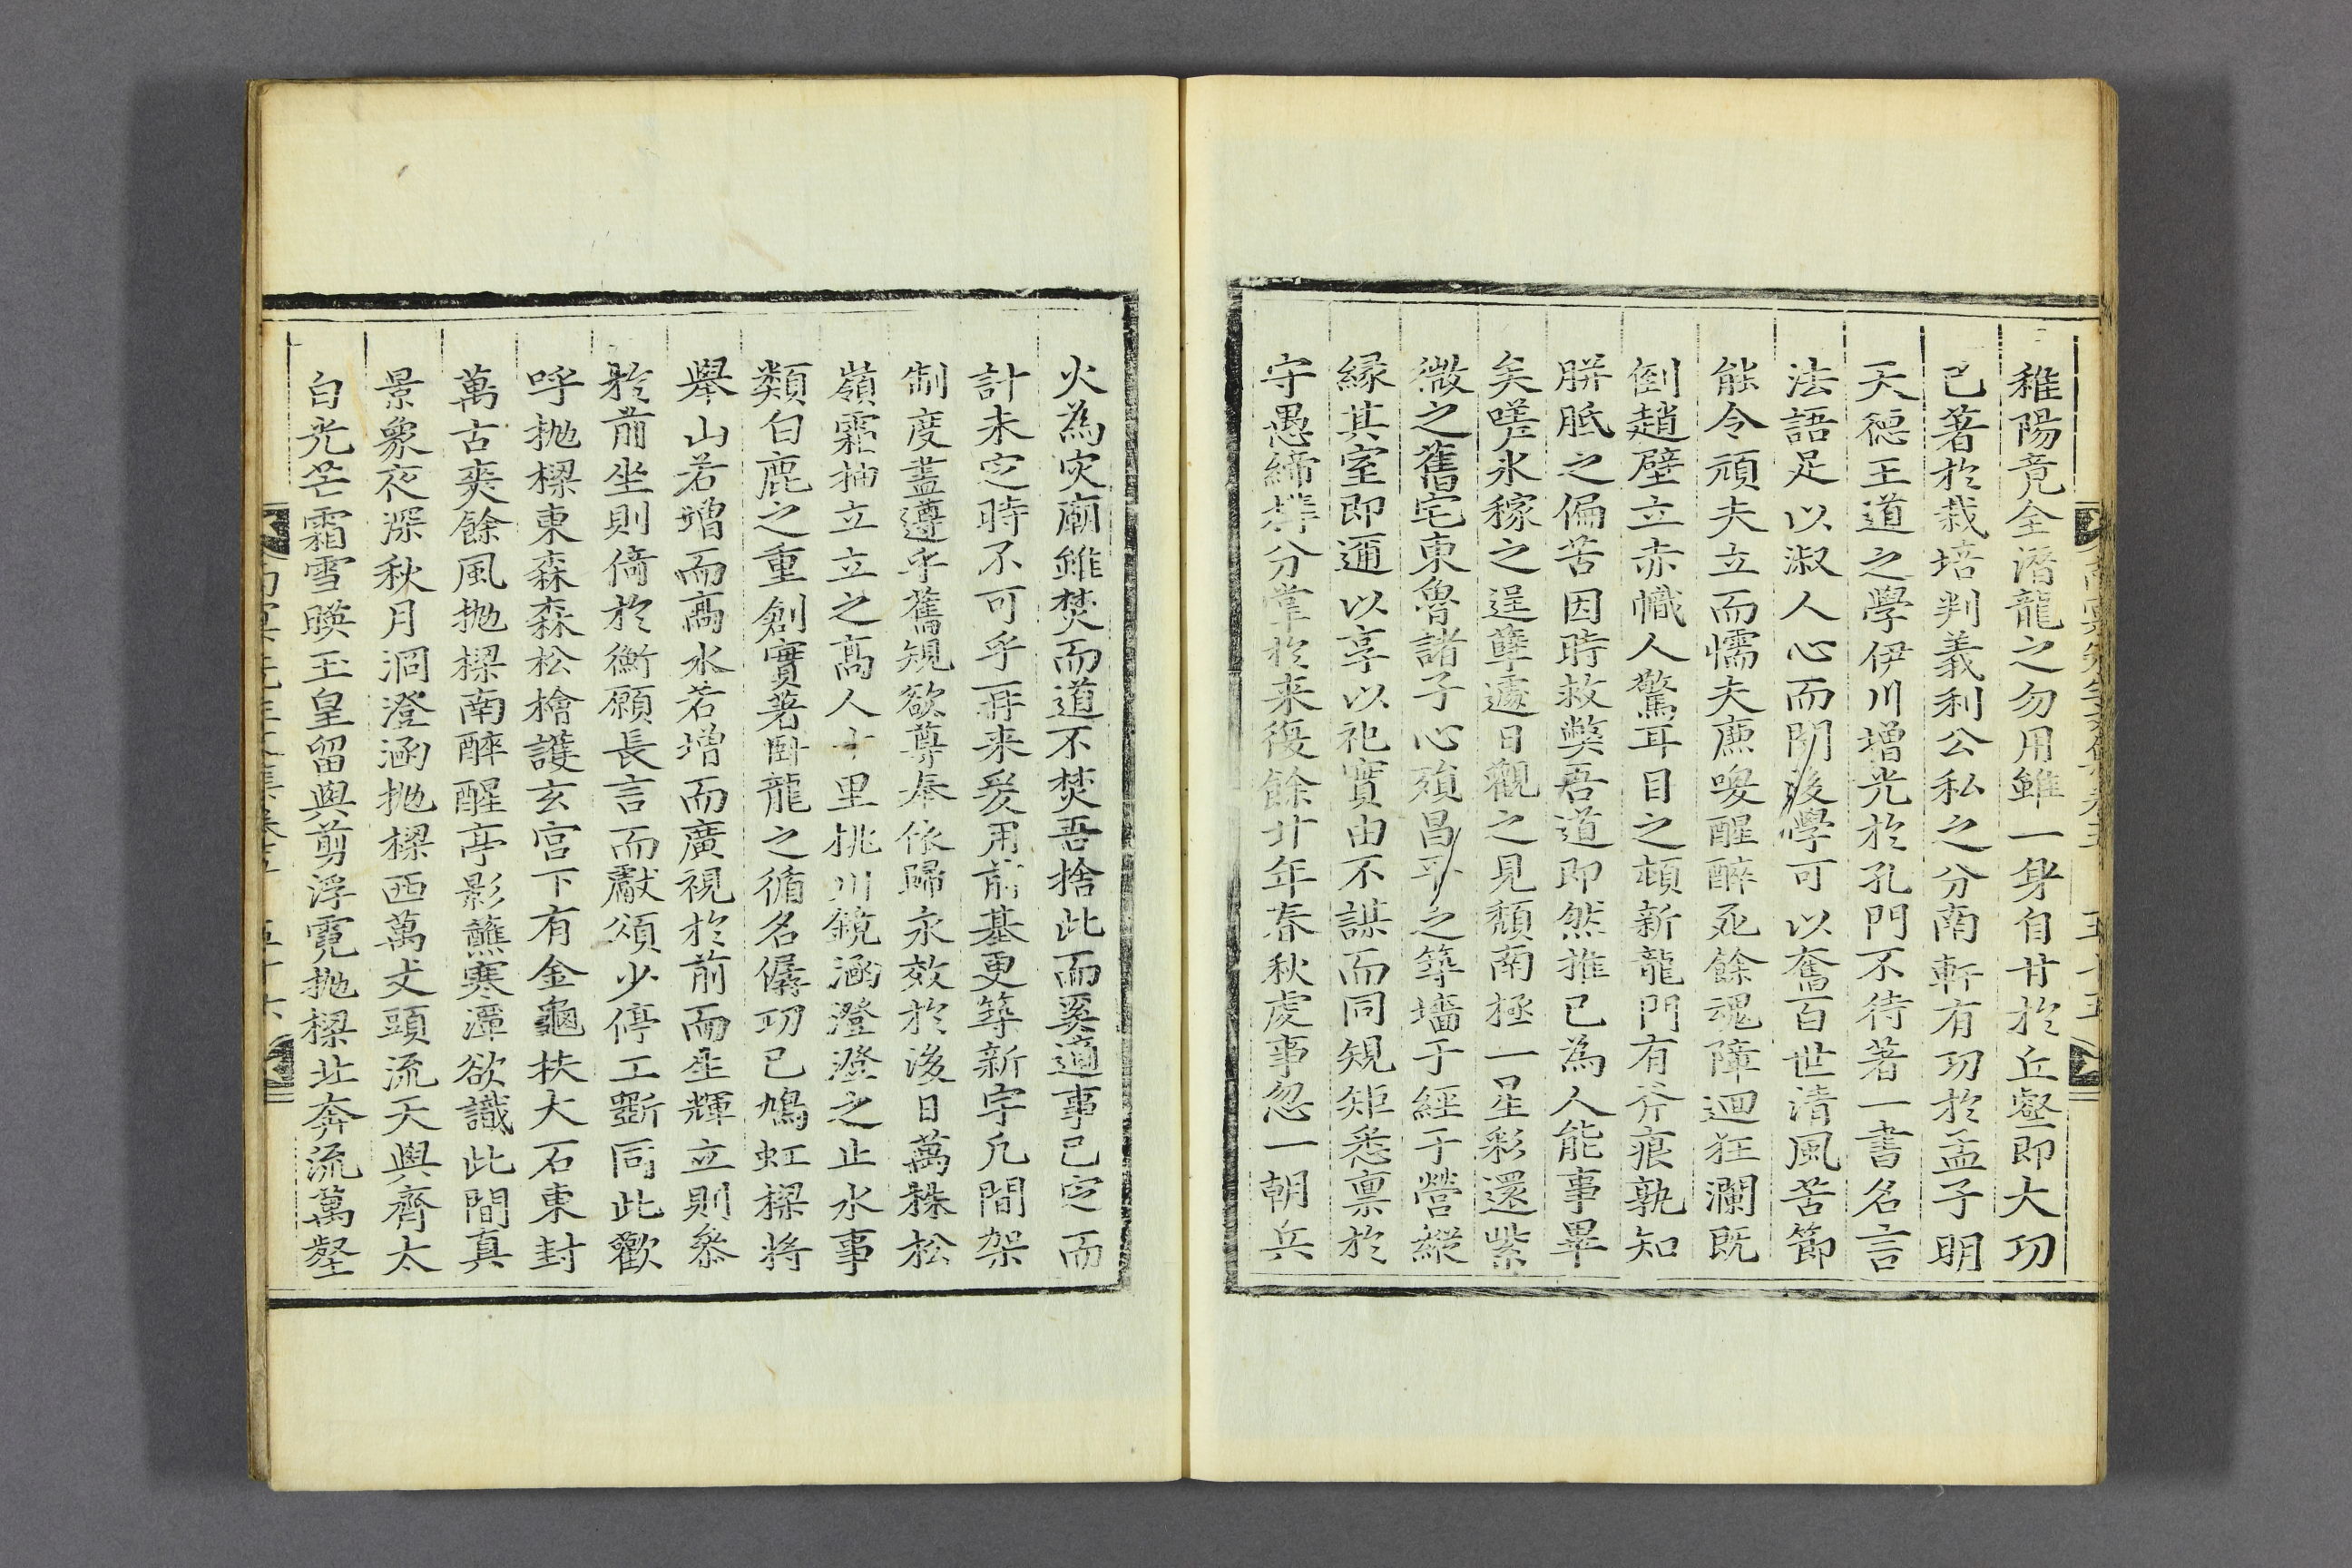 稚陽竟全潛龍之勿用雖一身自甘於丘壑即大功
已著於栽培判義利公私之分南軒有功於孟子明
天德王道之學伊川增光於孔門不待著一書名言
法語足以淑人心而開後學可以奮百世清風苦節
能令頑夫立而懦夫廉喚醒醉死餘魂障迴狂瀾既
倒趙壁立赤幟人驚耳目之頓新龍門有斧痕孰知
胼胝之偏苦因時救弊吾道即然推已為人能事畢
矣嗟氷稼之逞孽遽日觀之見頹南極一星彩還紫
微之舊宅東魯諸子心殞昌平之築墻于經于營縱
緣其室即邇以享以祀實由不謀而同規矩悉稟於
守愚締構分掌於来復餘廿年春秋虔事忽一朝兵
火為灾廟雖焚而道不焚吾捨此而奚適事已定而
計未定時不可乎再来爰用前基更築新宇凡間架
制度盡遵乎舊規欲尊奉依歸永效於後日萬株松
嶺霜抽立立之高人十里桃川鏡涵澄澄之止水事
類白鹿之重創實著臥龍之循名僝功已鳩虹樑將
舉山若增而高水若增而廣視於前而生輝立則參
於前坐則倚於衡願長言而獻頌少停工斲同此歡
呼抛樑東森森松檜護玄宮下有金龜扶大石東封
萬古爽餘風抛樑南醉醒亭影蘸寒潭欲識此間真
景象夜深秋月洞澄涵抛樑西萬丈頭流天與齊太
白光芒霜雪暎玉皇留與剪浮霓抛樑北奔流萬壑